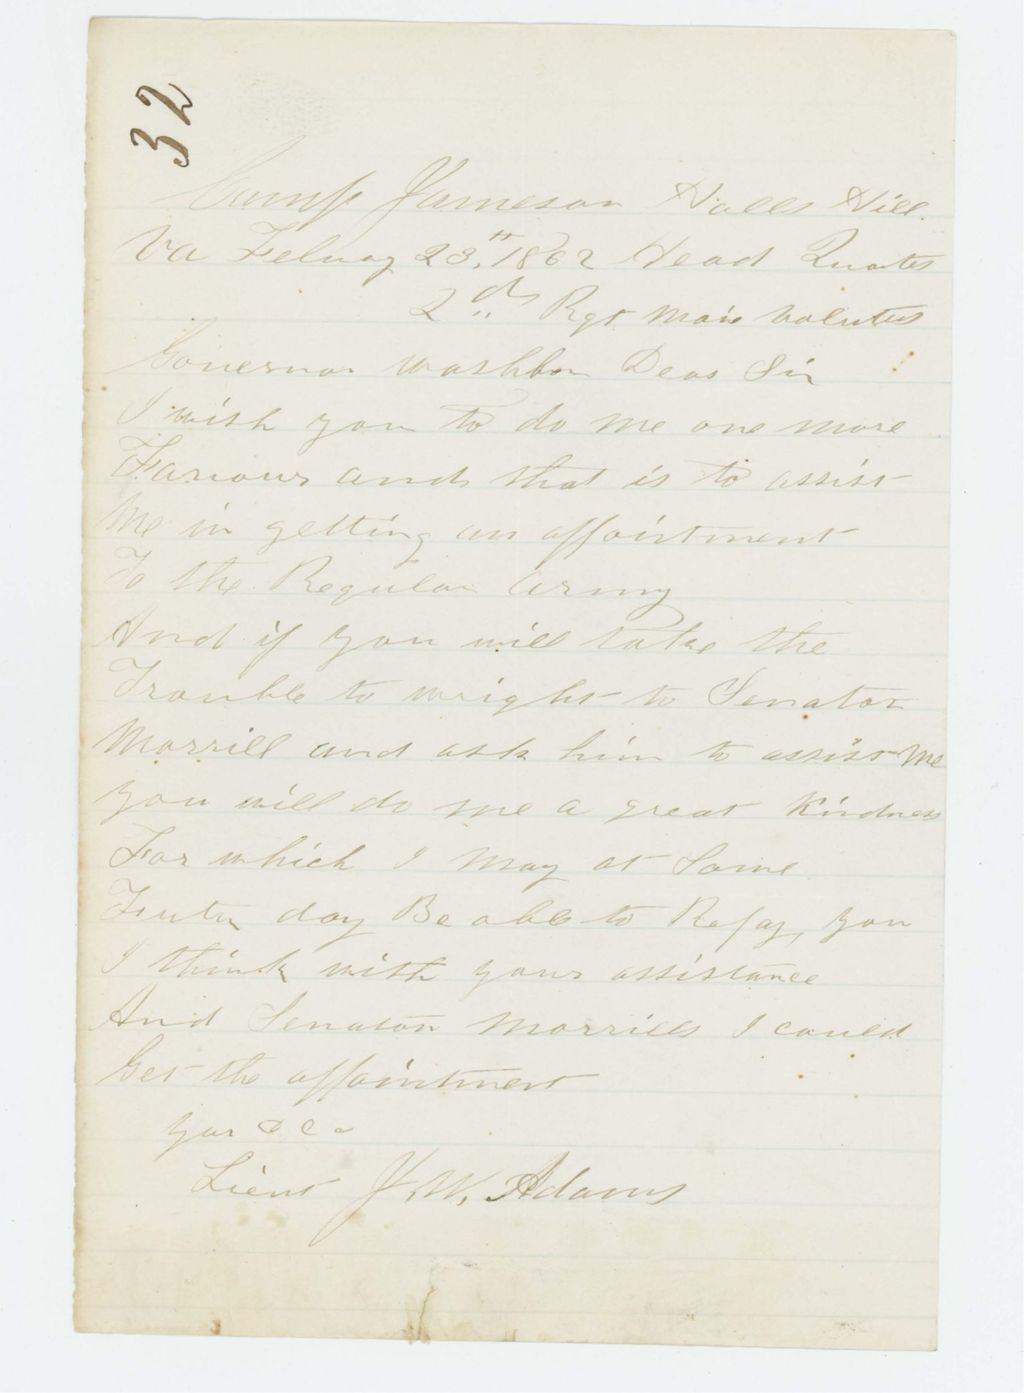 32
Camp Jameson Halls Hill.
Va Febuay 23th 1862 Head Quates
2ds Rgt Main Voluteus
Governor Washbon Dear Sir
I wish you to do me one more
Favour and that is to assist
Me in getting an appointment
To the Regular Army
And if you will take the
Trouble to wright to Senator
Morrill and ask him to assist Me
you will do me a great Kindness
For which I May at Some
Futur day Be able to Repay, you
I think with your assistance
And Senator Morrills I could
Get the appointment
your &c
Lieut J. W. Adams